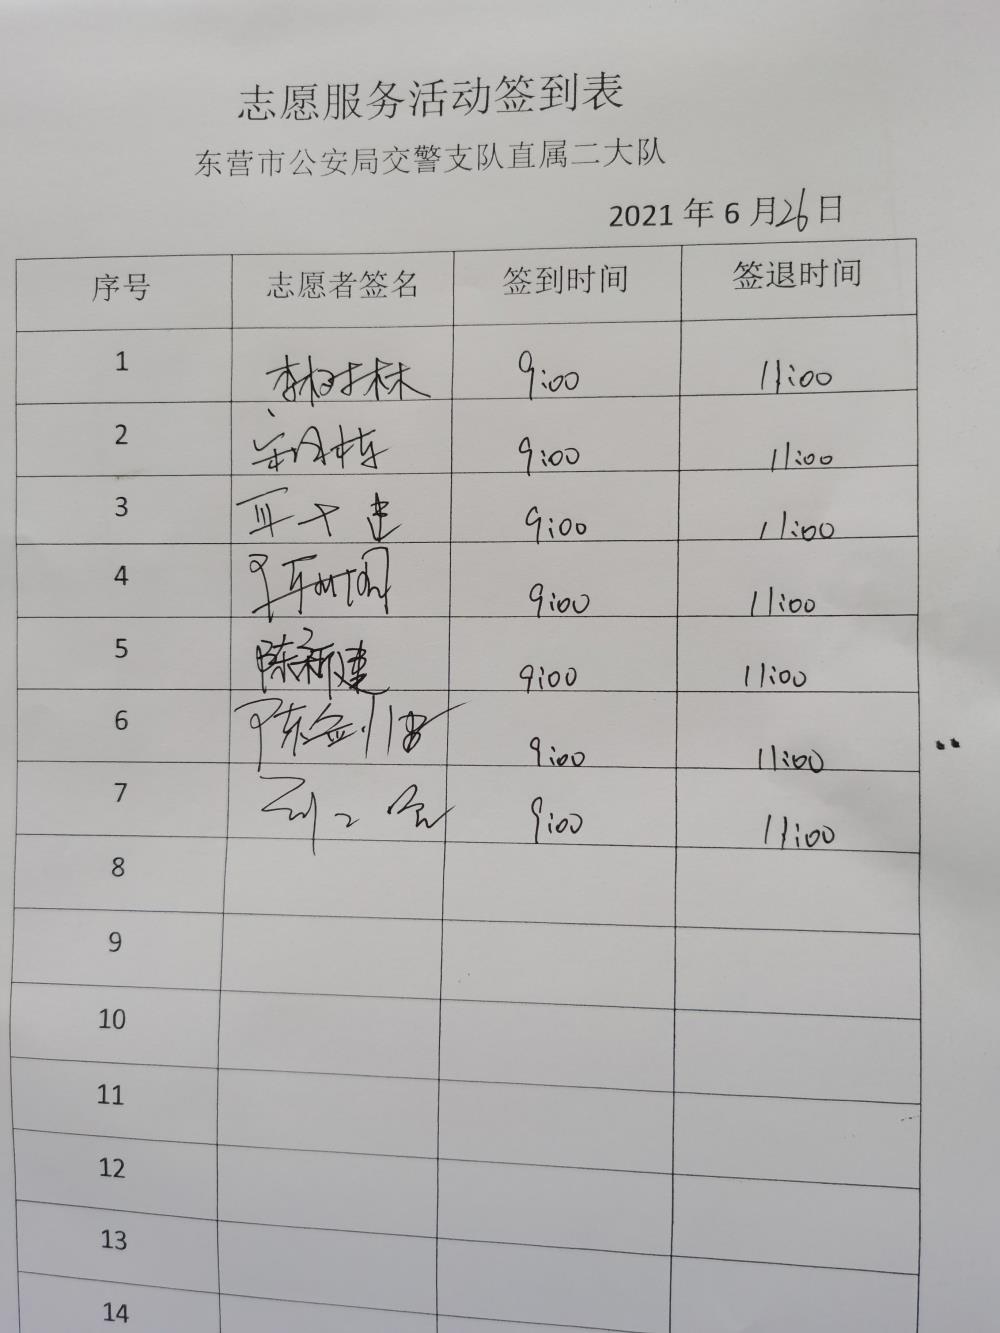 志愿服务活动签到表
东营市公安局交警支队直属二大队
2021 年 6 月26日
序号 志愿者签名 签到时间 签退时间
1 李树林 9:00 11:00
2 9:00 11:00
3 9:00 11:00
4 9:00 11:00
5 陈新建 9:00 11:00
6 9:00 11:00
7 9:00 11:00
8
9
10
11
12
13
14